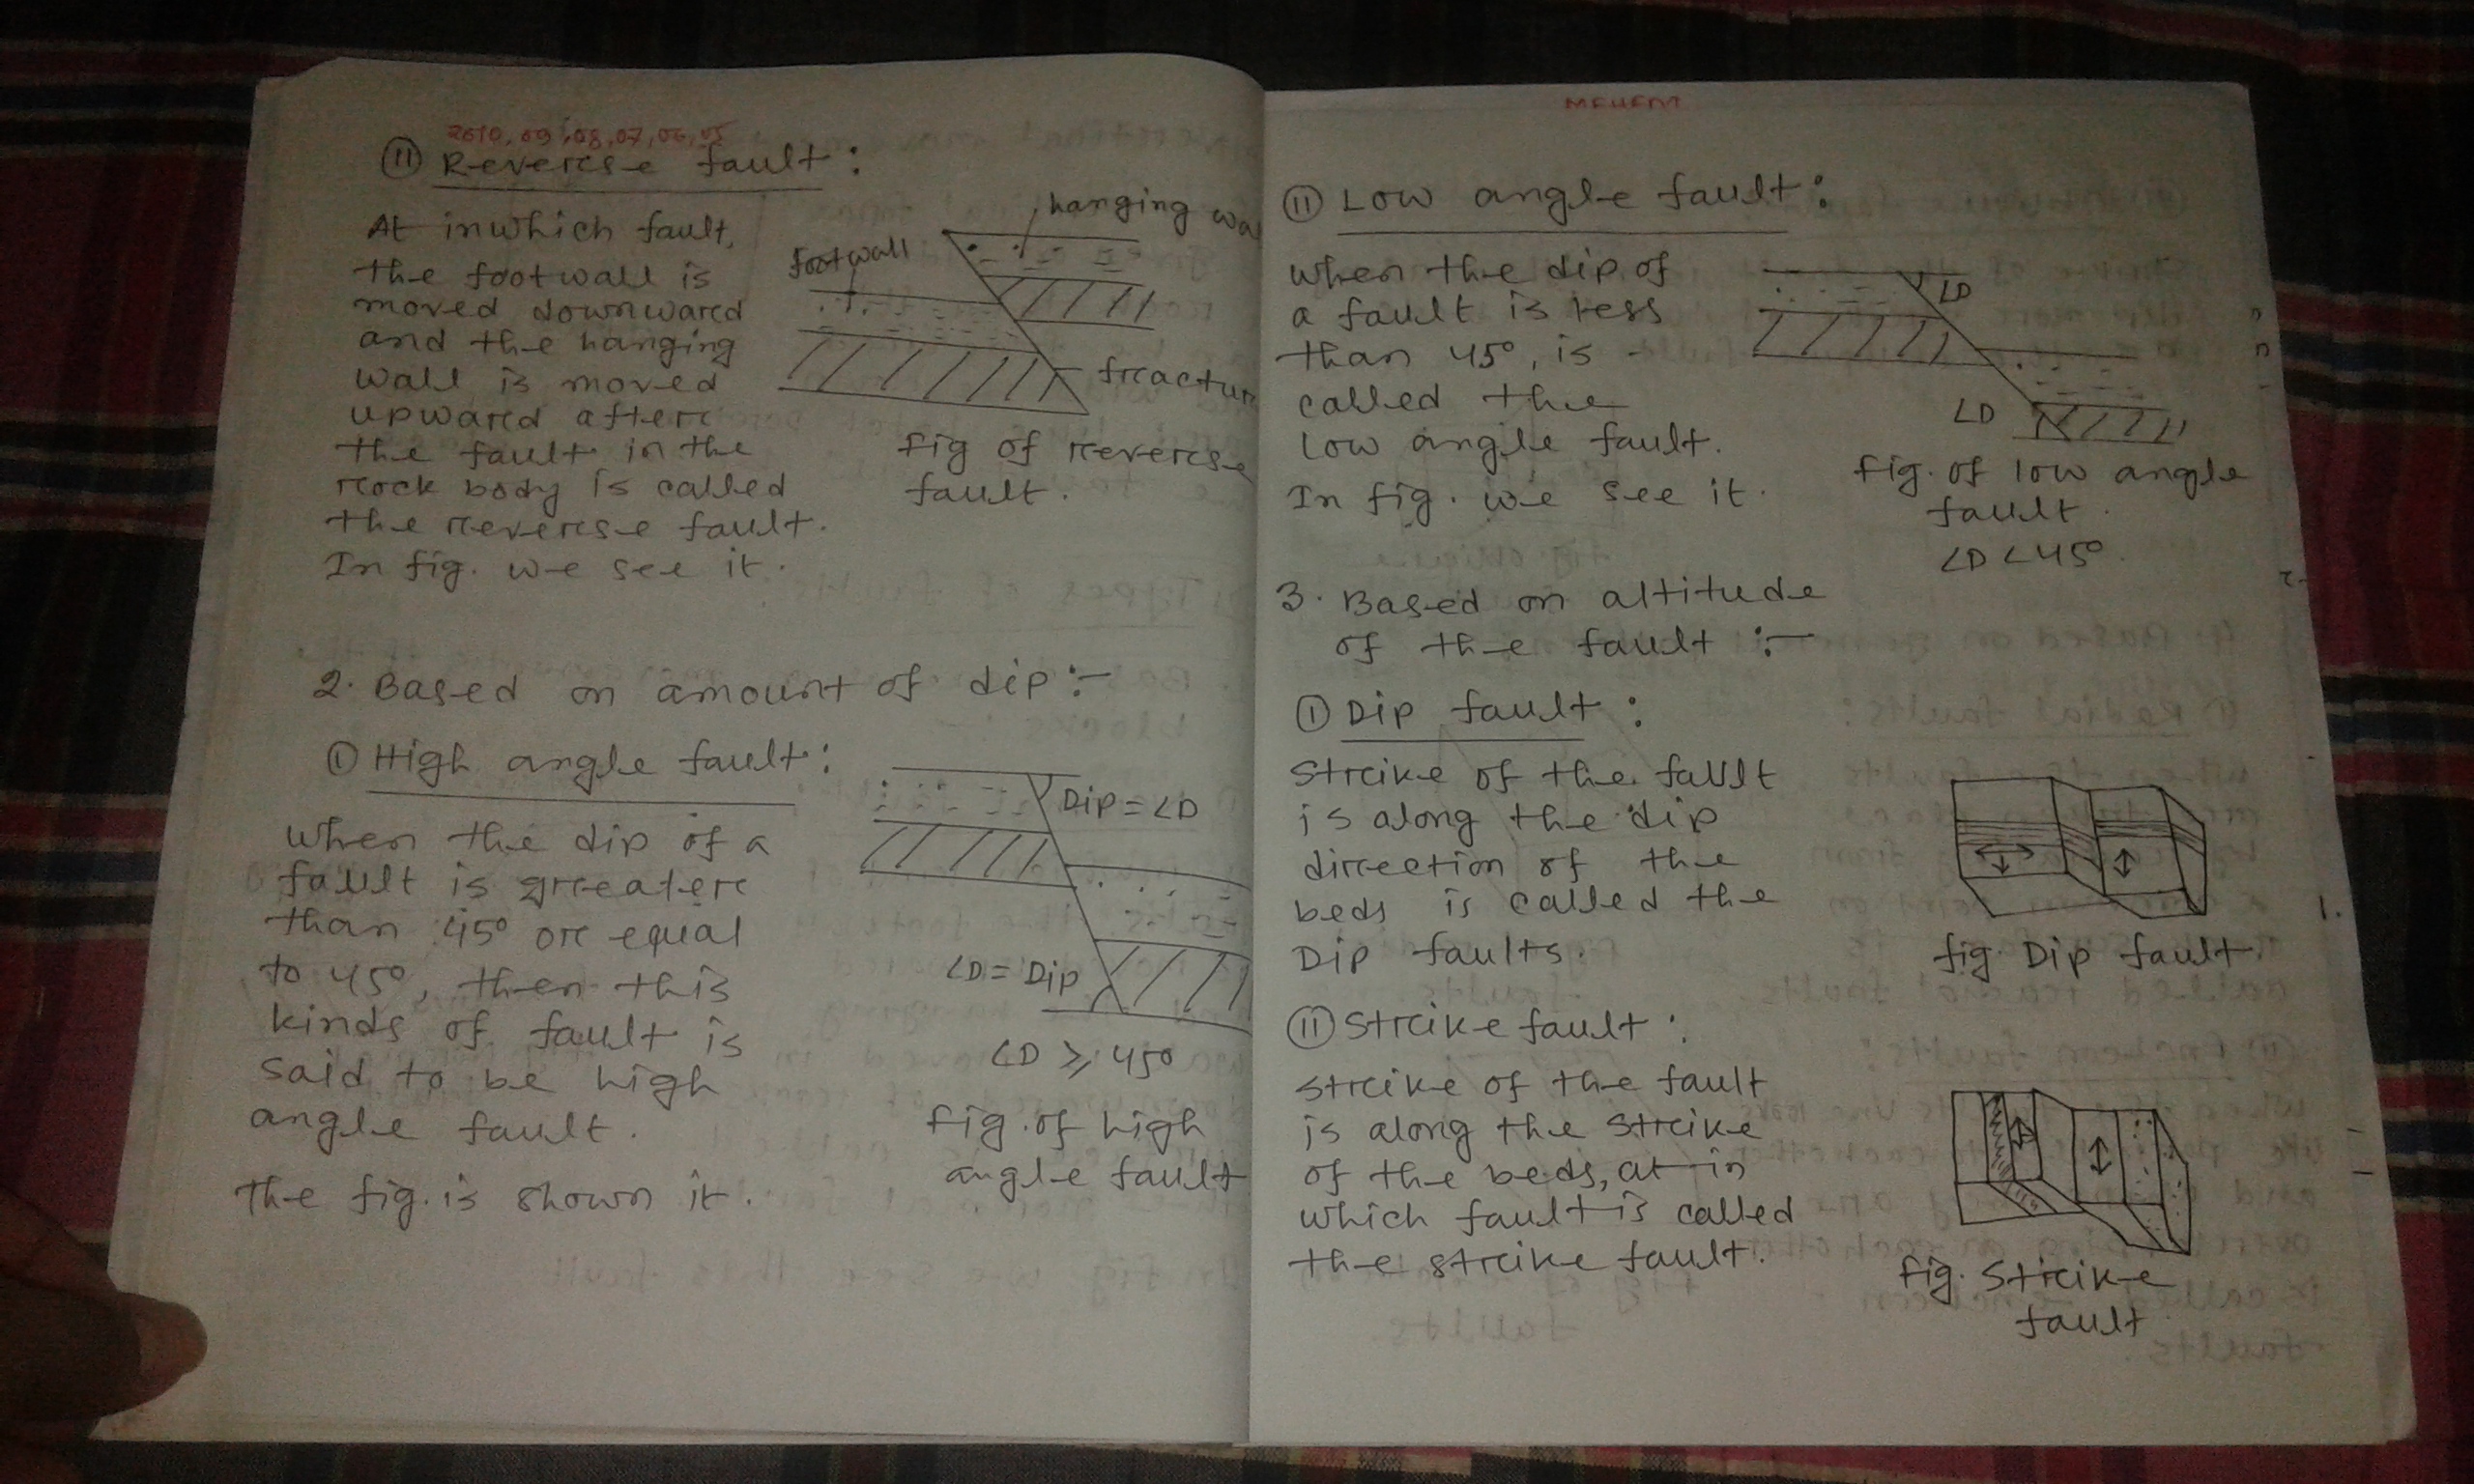 2010, 09, 08, 07, 06, 05
(ii) Reverse fault :
At inwhich fault,
the footwall is
moved downward
and the hanging
wall is moved
upward after
the fault in the
rock body is called
the reverse fault.
In fig. we see it.
hanging wa
footwall
fractur
fig of reverse
fault.
2. Based on amount of dip :-
(i) High angle fault :
When the dip of a
fault is greater
than 45° or equal
to 45°, then this
kinds of fault is
said to be high
angle fault.
The fig. is shown it.
Dip = ∠D
∠D = Dip
∠D ≥ 45°
fig. of high
angle fault
(ii) Low angle fault :
When the dip of
a fault is less
than 45°, is
called the
low angle fault.
In fig. we see it.
∠D
∠D
fig. of low angle
fault.
∠D < 45°.
3. Based on altitude
of the fault :-
(i) Dip fault :
Strike of the fault
is along the dip
direction of the
beds is called the
Dip faults.
fig. Dip fault.
(ii) Strike fault :
Strike of the fault
is along the strike
of the beds, at in
which fault is called
the strike fault.
fig. Strike
fault